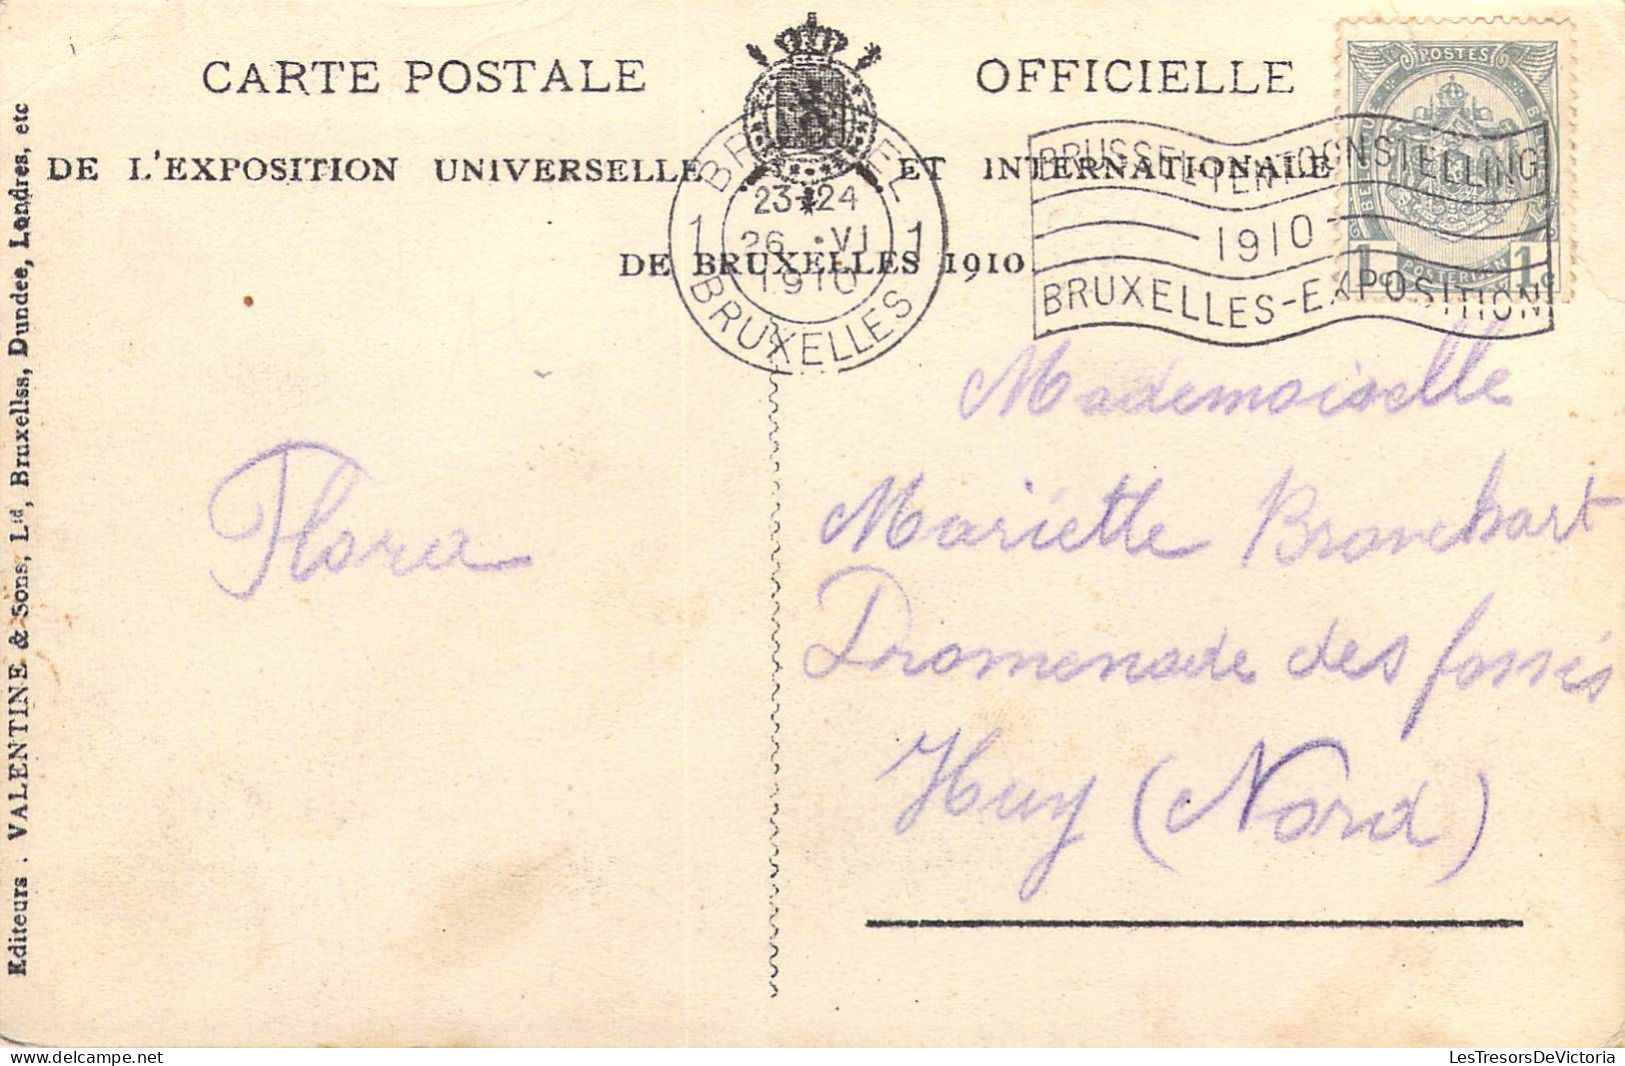 CARTE POSTALE OFFICIELLE
DE L'EXPOSITION UNIVERSELLE ET INTERNATIONALE
DE BRUXELLES 1910
Editeurs : VALENTINE & Sons, Ltd, Bruxellss, Dundee, Londres, etc
BRUSSEL
1 23-24 1
26 VI
1910
BRUXELLES
BRUSSEL TENTOONSTELLING
1910
BRUXELLES-EXPOSITION
POSTES
BELGIQUE
POSTERIJEN
1c 1c
Mademoiselle
Mariette Branchart
Promenade des fossés
Huy (Nord)
Flora
LesTresorsDeVictoria